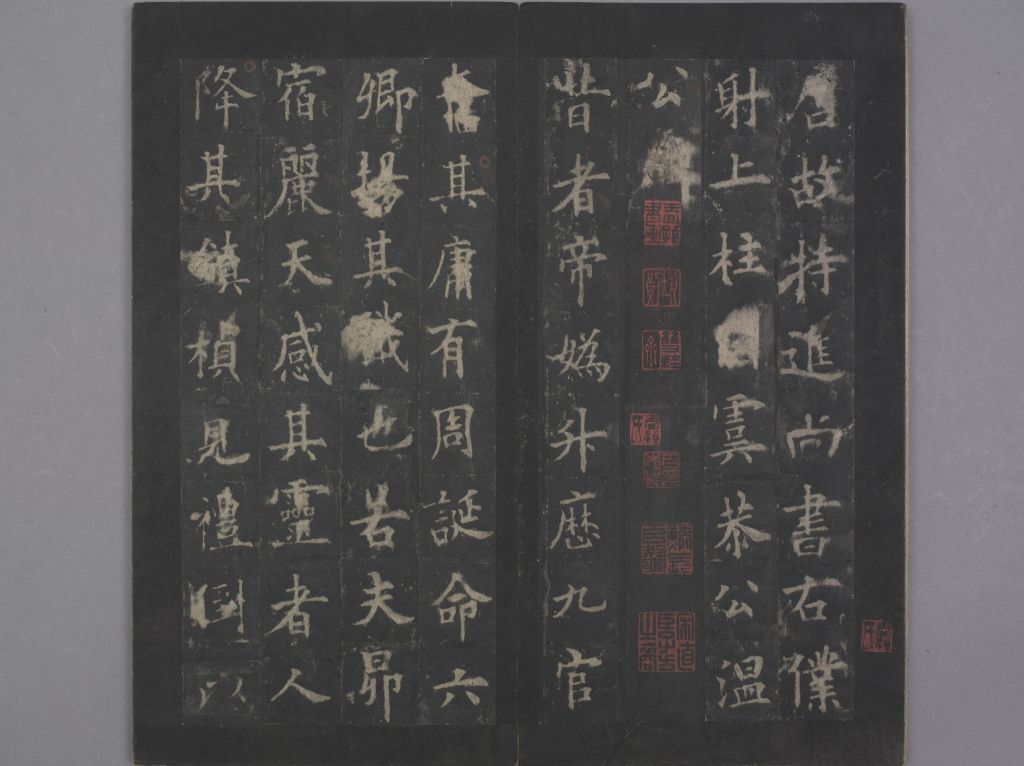 唐故特進尚書右僕
射上柱國虞恭公温
公碑
昔者帝媯升厯九官
奮其庸有周誕命六
卿揚其職也若夫昴
宿麗天感其靈者人
降其鎮楨見禮國以